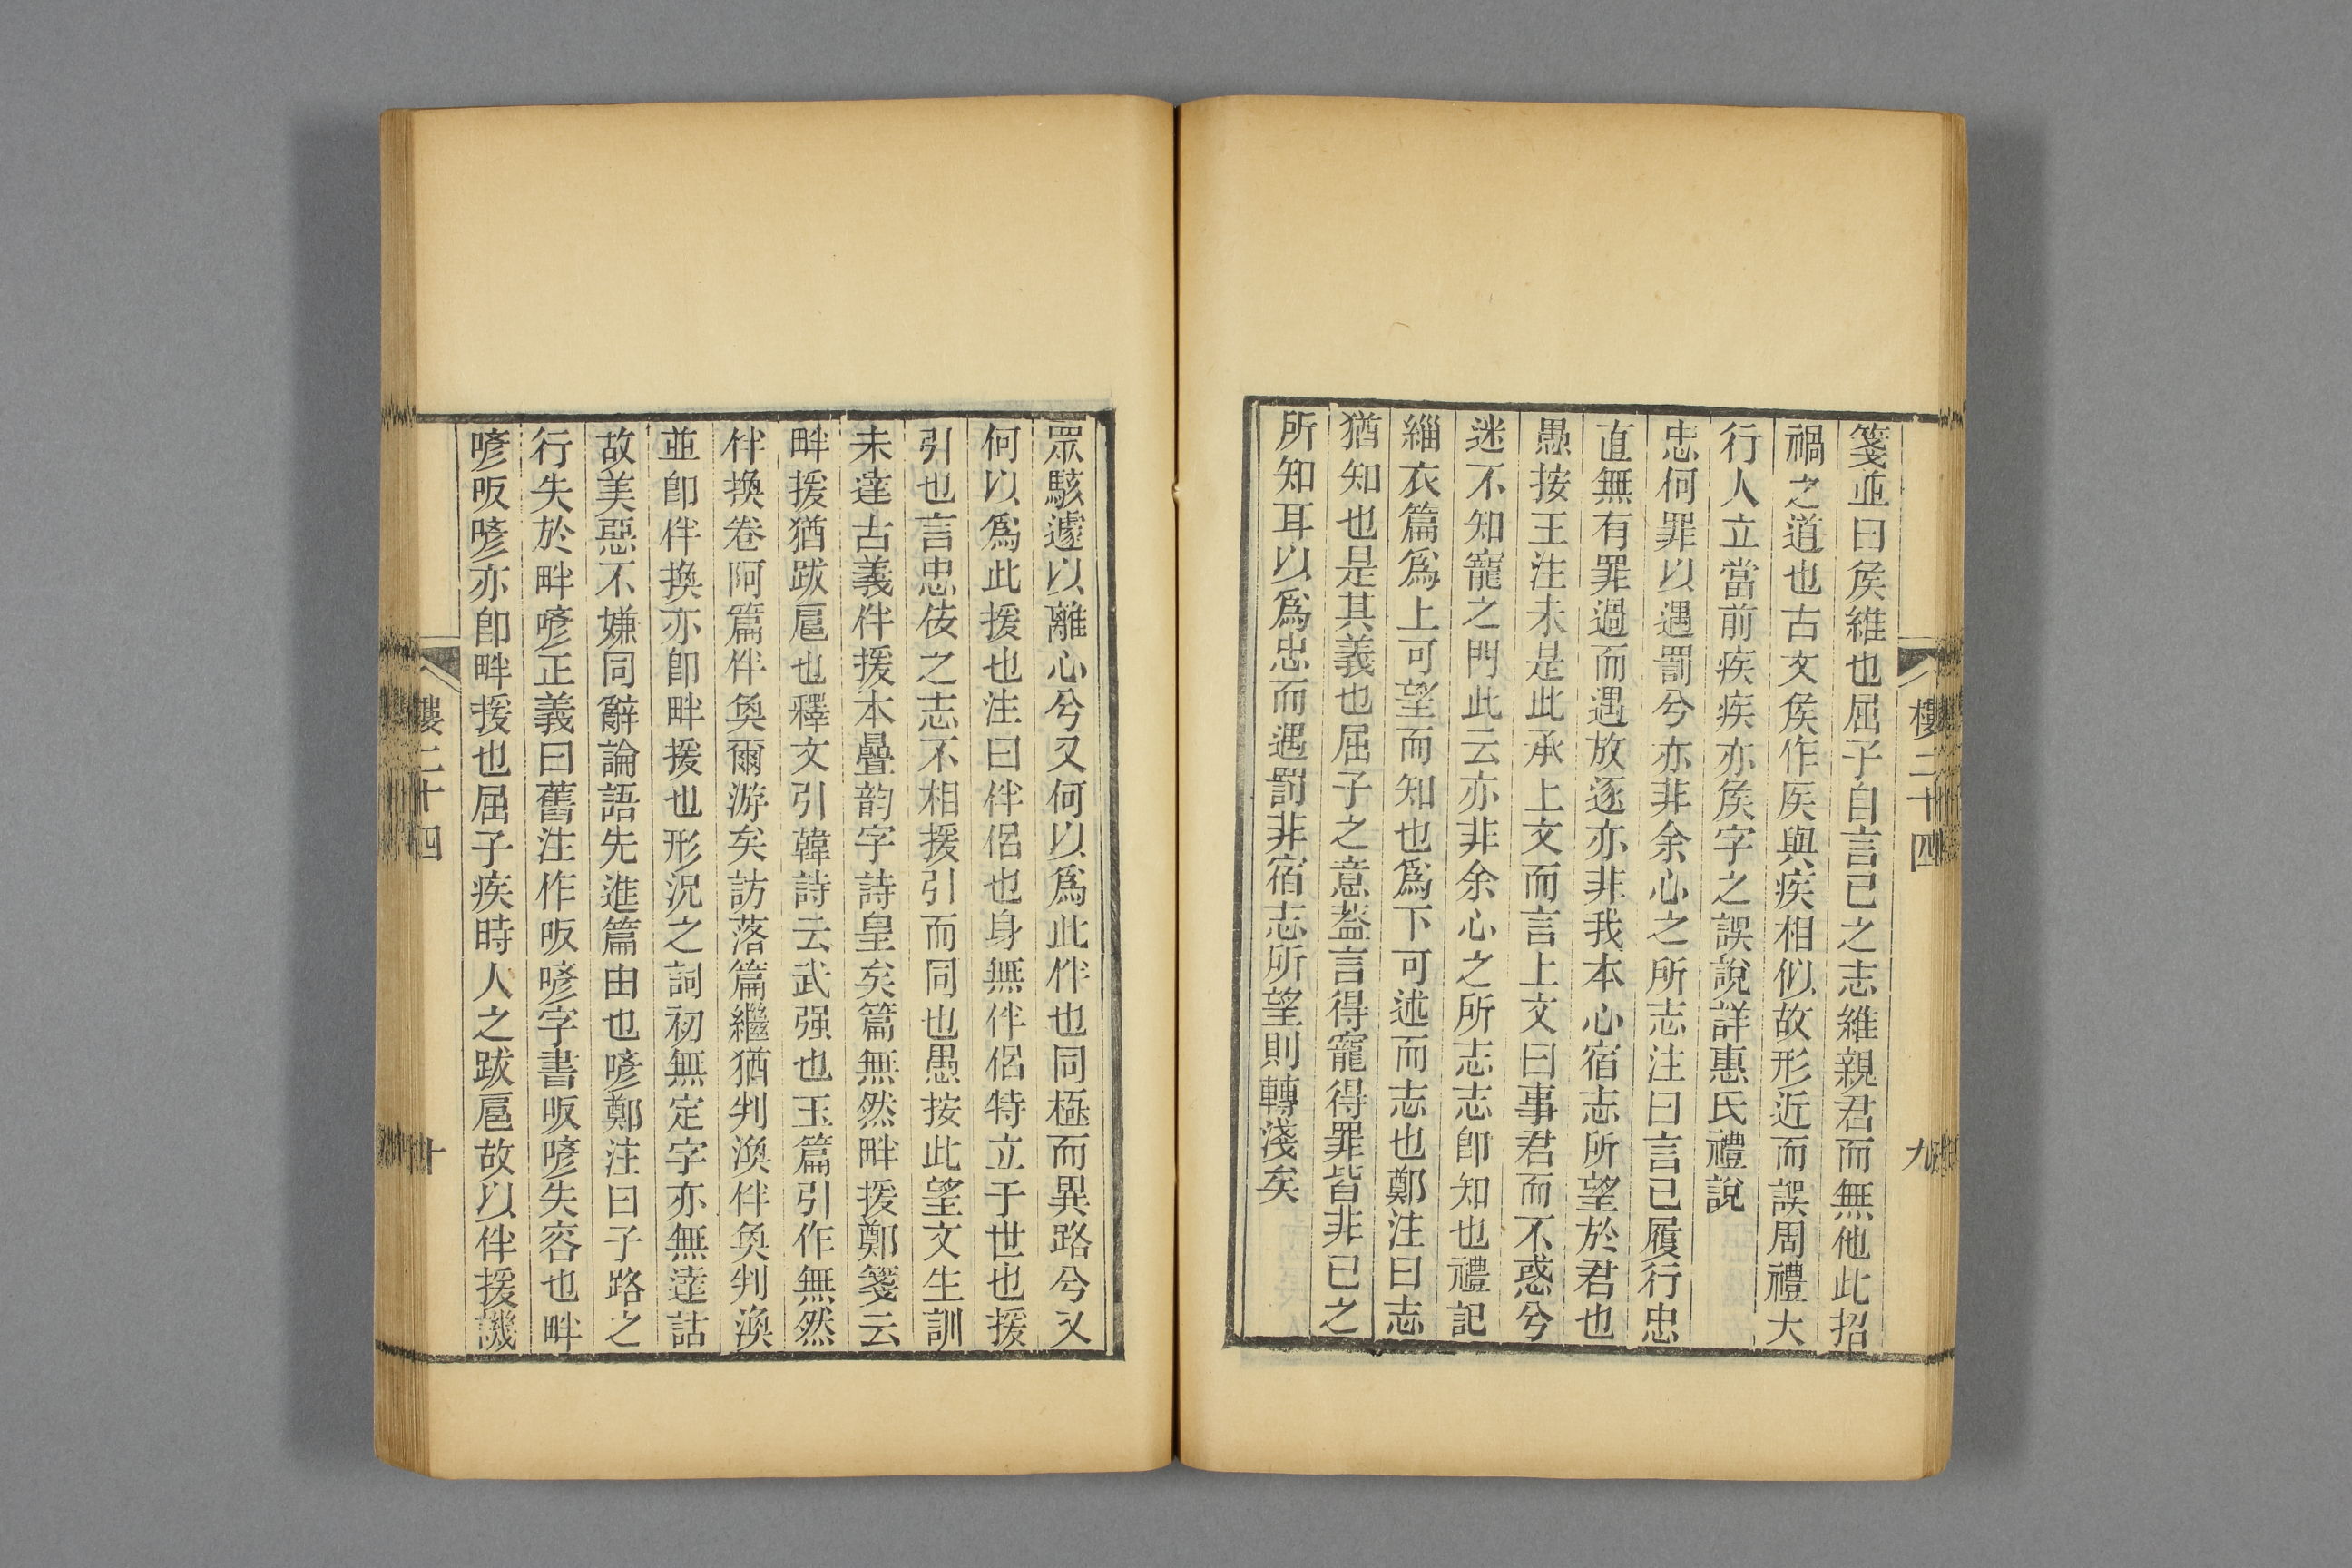 箋並曰矦維也屈子自言己之志維親君而無他此招
禍之道也古文矦作𥎦與疾相似故形近而誤周禮大
行人立當前疾疾亦矦字之誤說詳惠氏禮說
忠何罪以遇罰兮亦非余心之所志注曰言己履行忠
直無有罪過而遇放逐亦非我本心宿志所望於君也
愚按王注未是此承上文而言上文曰事君而不惑兮
迷不知寵之門此云亦非余心之所志志卽知也禮記
緇衣篇爲上可望而知也爲下可述而志也鄭注曰志
猶知也是其義也屈子之意葢言得寵得罪皆非己之
所知耳以爲忠而遇罰非宿志所望則轉淺矣
樓二十四
九
眾駭遽以離心兮又何以爲此伴也同極而異路兮又
何以爲此援也注曰伴侶也身無伴侶特立于世也援
引也言忠佞之志不相援引而同也愚按此望文生訓
未達古義伴援本疊韵字詩皇矣篇無然畔援鄭箋云
畔援猶跋扈也釋文引韓詩云武强也玉篇引作無然
伴換卷阿篇伴奐爾游矣訪落篇繼猶判渙伴奐判渙
並卽伴換亦卽畔援也形況之詞初無定字亦無達詁
故美惡不嫌同辭論語先進篇由也喭鄭注曰子路之
行失於畔喭正義曰舊注作昄喭字書昄喭失容也畔
喭昄喭亦卽畔援也屈子疾時人之跋扈故以伴援譏
樓二十四
十